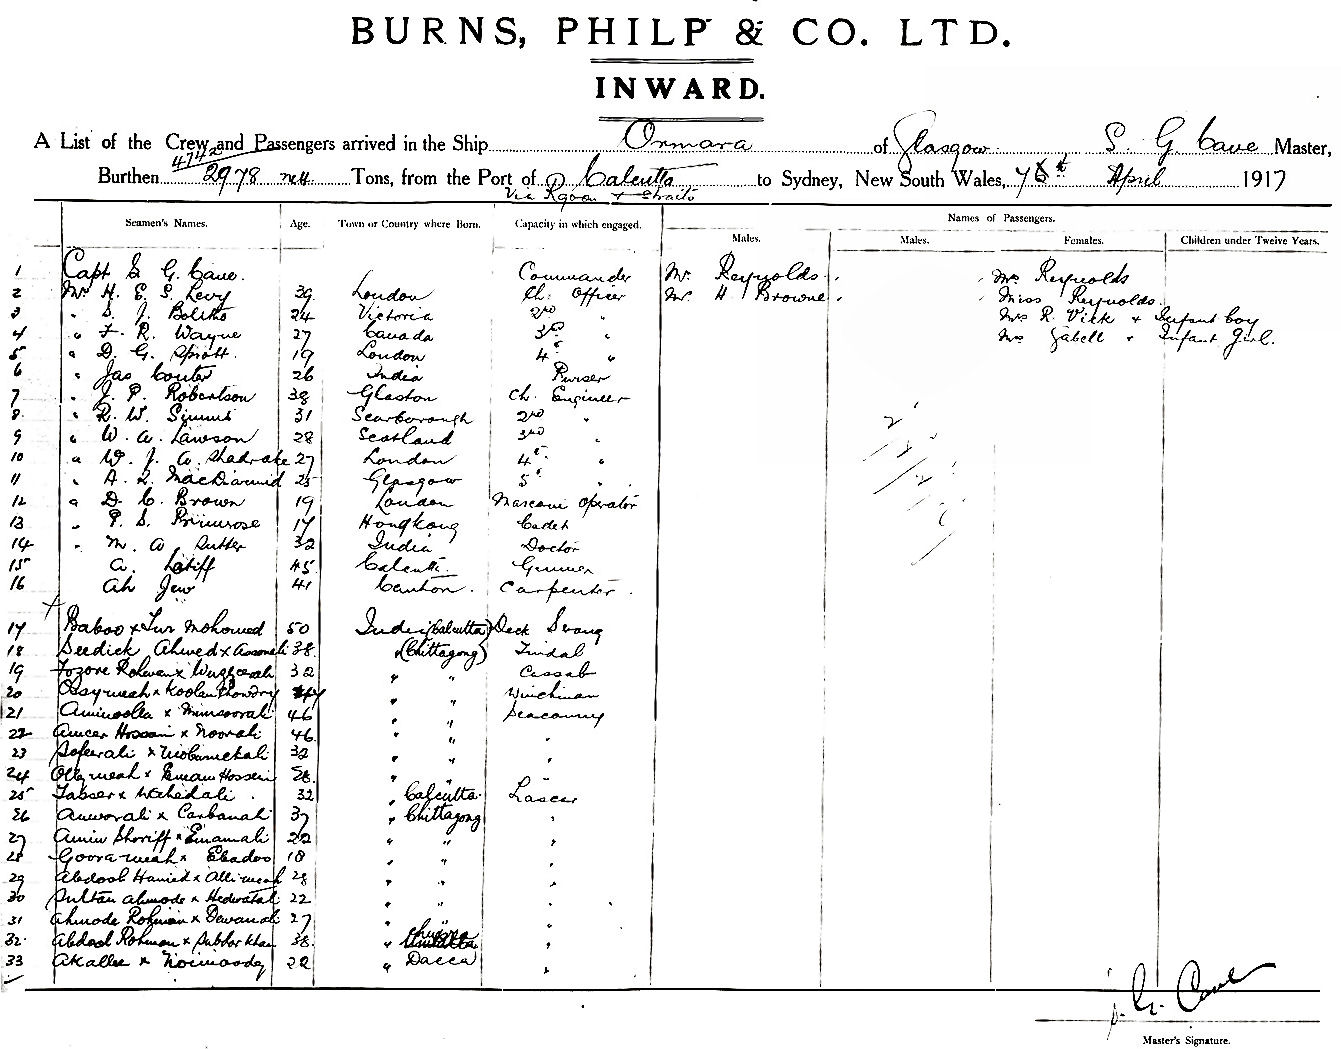 BURNS, PHILP & CO. LTD.
INWARD.
A List of the Crew and Passengers arrived in the Ship Ormara of Glasgow S. G. Cave Master,
4742
Burthen 2978 nett Tons, from the Port of Calcutta to Sydney, New South Wales, 7 April 1917
Via Rgoon & Straits
Names of Passengers.
Seamen's Names. Age. Town or Country where Born. Capacity in which engaged.
Males. Males. Females. Children under Twelve Years.
1 Capt S. G. Cave. Commander Mr. Reynolds Mrs Reynolds
2 Mr H. E. S. Levy 39 London Ch. Officer Mr H Browne Miss Reynolds
3 " S. J. 24 Victoria 2nd " Mrs R. Vick & Infant boy
4 " F. R. Wayne 27 Canada 3rd " Mrs Gabell & Infant Girl.
5 " D. G. Sprott. 19 London 4th "
6 " Jas Couter 26 India Purser
7 " J. P. Robertson 38 Glaston Ch. Engineer
8 " R. W. Simms 31 Scarborough 2nd "
9 " W. A. Lawson 28 Scotland 3rd "
10 " W. J. A. Shadrake 27 London 4th "
11 " A. L. MacDiarmid 25 Glasgow 5th
12 " D. C. Brown 19 London Marconi Operator
13 " P. S. Primrose 17 Hongkong Cadet
14 " M. A. Sutter 32 India Doctor
15 A. Latiff 45 Calcutta Gunner
16 Ah Jew 41 Canton. Carpenter.
17 Baboo x Mohomed 50 India (Calcutta) Deck Serang
18 Seedick Ahmed x 38 (Chittagong) Tindal
19 32 " " Cassab
20 x " " Winchman
21 Aminoolla x 46 " " Seacunny
22 Ameer Hossein x Noorali 46 " " "
23 x 32 " " "
24 x Emam Hossein 28 " "
25 x Wahedali 32 " Calcutta Lascar
26 Anworali x 37 " Chittagong "
27 Amin Shoriff x Emamali 22 " " "
28 x 18 " " "
29 Abdool Hamid x 28 " " "
30 Sultan Ahmode x 22 " " "
31 Ahmode Rohman x 27 " "
32 Abdool Rohman x 38 " "
33 x 22 " Dacca "
S. G. Cave
Master's Signature.